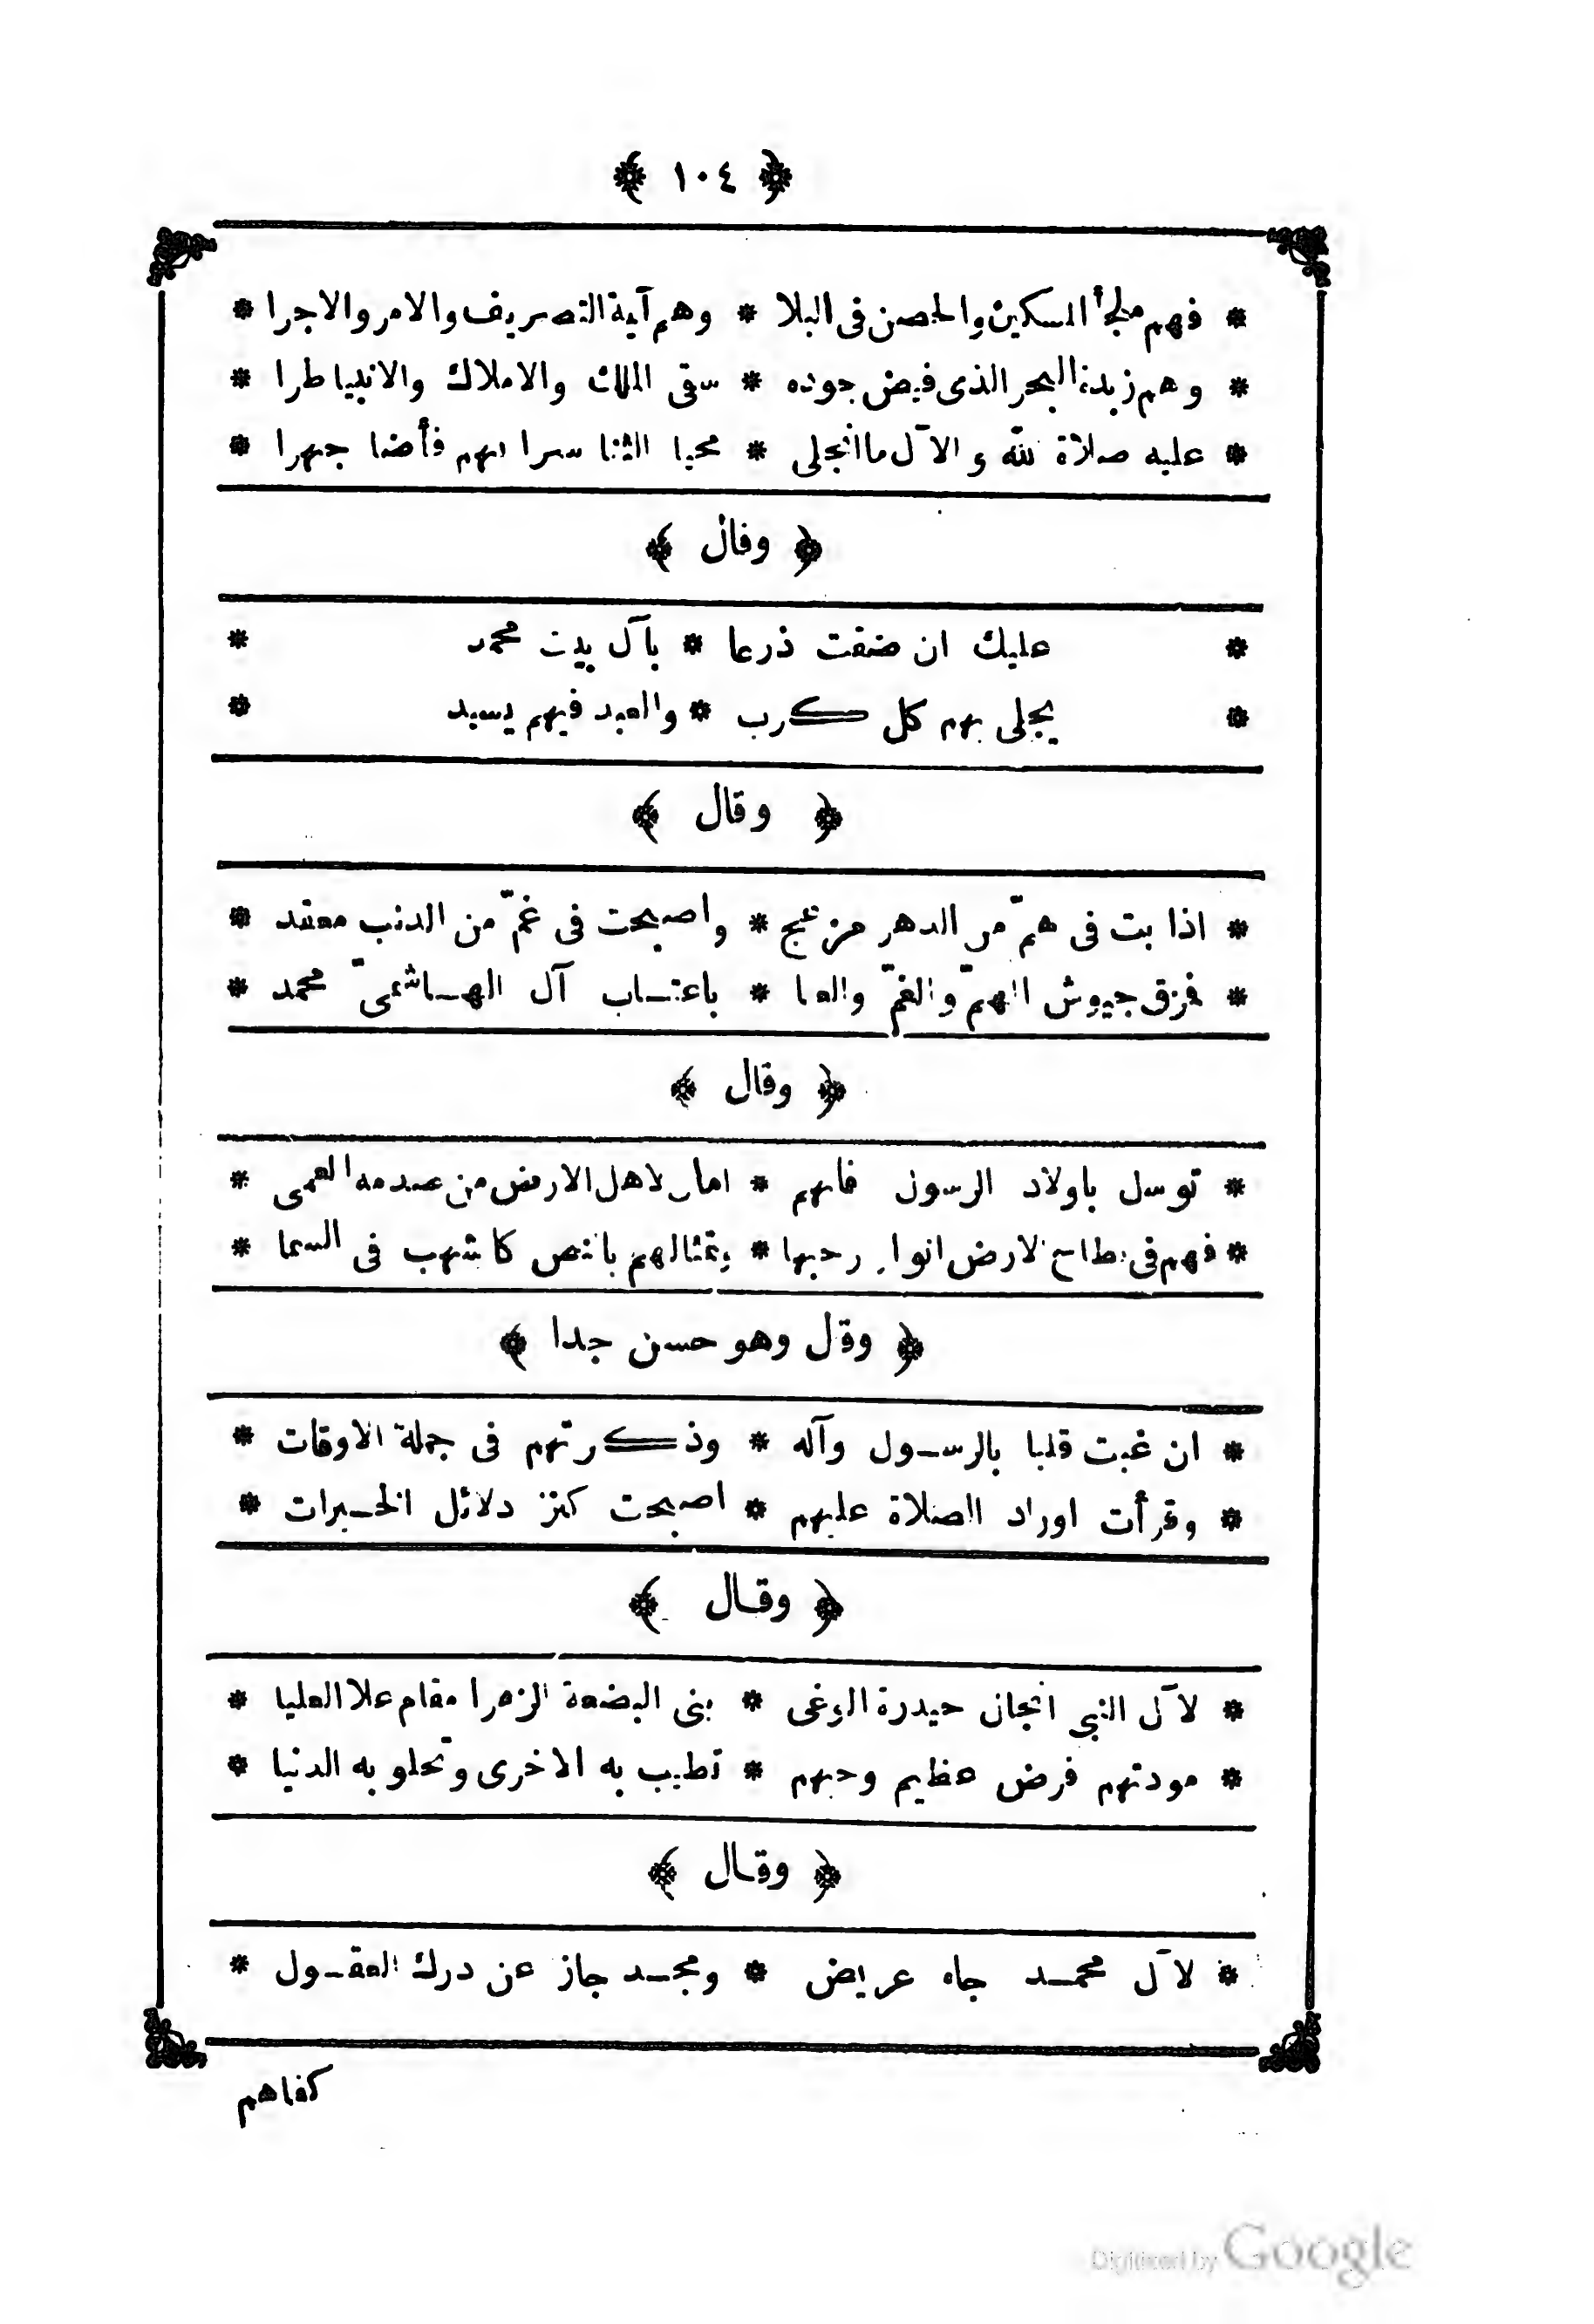 ﴿ ١٠٤ ﴾
* فهم ملجأ المسكين والحصن فى البلا * وهم آية التصريف والامر والاجرا *
* وهم زبدة البحر الذى فيض جوده * سقى الملك والاملاك والانبيا طرا *
* عليه صلاة الله والآل ما انجلى * محيا الثنا سرا بهم فأضا جهرا *
﴿ وقال ﴾
* عليك ان ضقت ذرعا * بآل بيت محمد *
* يجلى بهم كل كرب * والعبد فيهم يسيد *
﴿ وقال ﴾
* اذا بت فى همّ من الدهر مزعج * واصبحت فى غمّ من الذنب مقعد *
* فمزق جيوش الهمّ والغمّ والعا * باعتاب آل الهاشمىّ محمد *
﴿ وقال ﴾
* توسل باولاد الرسول فانهم * امان لاهل الارض من صدمة العمى *
* فهم فى بطاح الارض انوار رحبها * وتمثالهم بالنص كالشهب فى السما *
﴿ وقال وهو حسن جدا ﴾
* ان غبت قلبا بالرسول وآله * وذكرتهم فى جملة الاوقات *
* وقرأت اوراد الصلاة عليهم * اصبحت كنز دلائل الخيرات *
﴿ وقال ﴾
* لآل النبي انجال حيدرة الوغى * بنى البضعة الزهرا مقام علا العليا *
* مودتهم فرض عظيم وحبهم * تطيب به الاخرى وتحلو به الدنيا *
﴿ وقال ﴾
* لآل محمد جاه عريض * ومجد جاز عن درك العقول *
كفاهم
Digitized by Google